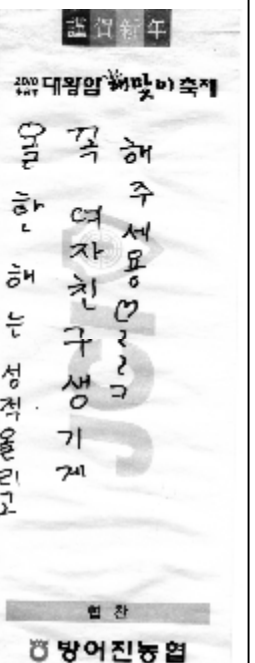 謹賀新年
2010 대왕암 해맞이 축제
올 한 해는 성적올리고
꼭 여자친구생기게
해주세용♡ㄹㄹㅋ
JCI
협찬
방어진농협